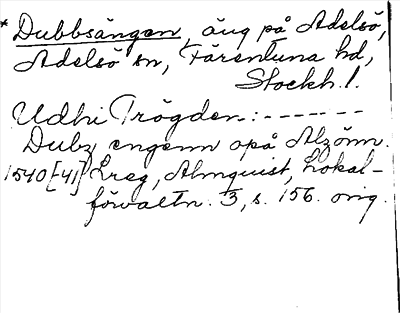 * Dubbsängen, äng på Adelsö,
Adelsö sn, Färentuna hd,
Stockh. l.
Udhi Trögden:-------
Dubz engenn opå Alzönn.
1540[-41] Lreg, Almquist, Lokal-
förvaltn. 3, s. 156. orig.